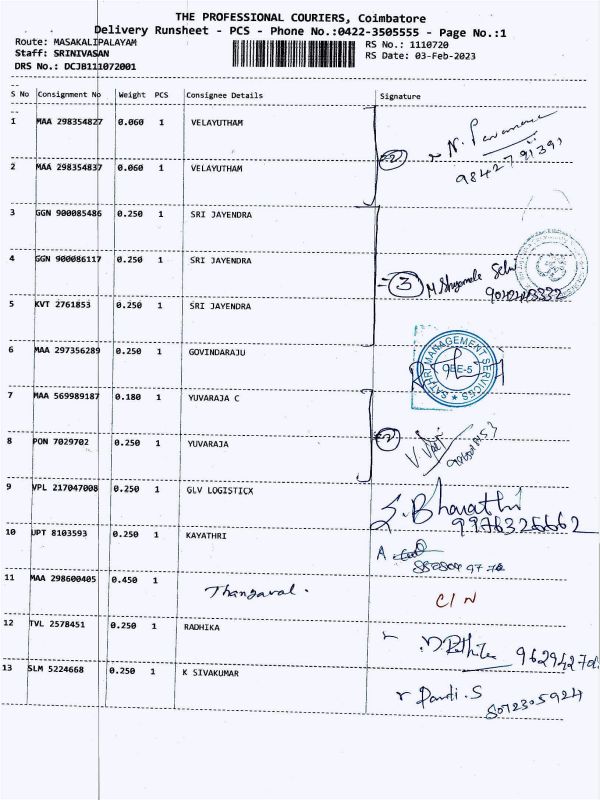 THE PROFESSIONAL COURIERS, Coimbatore
Delivery Runsheet - PCS - Phone No.:0422-3505555 - Page No.:1
Route: MASAKALIPALAYAM
Staff: SRINIVASAN
DRS No.: DCJB111072001
RS No.: 1110720
RS Date: 03-Feb-2023
S No Consignment No Weight PCS Consignee Details Signature
1 MAA 298354827 0.060 1 VELAYUTHAM
2 MAA 298354837 0.060 1 VELAYUTHAM
3 GGN 900085486 0.250 1 SRI JAYENDRA
4 GGN 900086117 0.250 1 SRI JAYENDRA
3
5 KVT 2761853 0.250 1 SRI JAYENDRA
6 MAA 297356289 0.250 1 GOVINDARAJU
SATHRI MANAGEMENT SERVICES
CBE-5
7 MAA 569989187 0.180 1 YUVARAJA C
8 PON 7029702 0.250 1 YUVARAJA
9 VPL 217047008 0.250 1 GLV LOGISTICX
S. Bharathi
9976326662
10 UPT 8103593 0.250 1 KAYATHRI
11 MAA 298600405 0.450 1 Thangaval. C/N
12 TVL 2578451 0.250 1 RADHIKA
13 SLM 5224668 0.250 1 K SIVAKUMAR
Pandi. S
8072305924